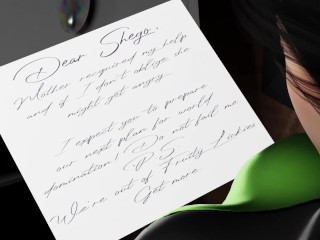 Dear Shego,
Mother required my help
and if I don't oblige she
might get angry...
I expect you to prepare
our next plan for world
domination! Do not fail me
PS
We're out of Fruity Lickies
Get more